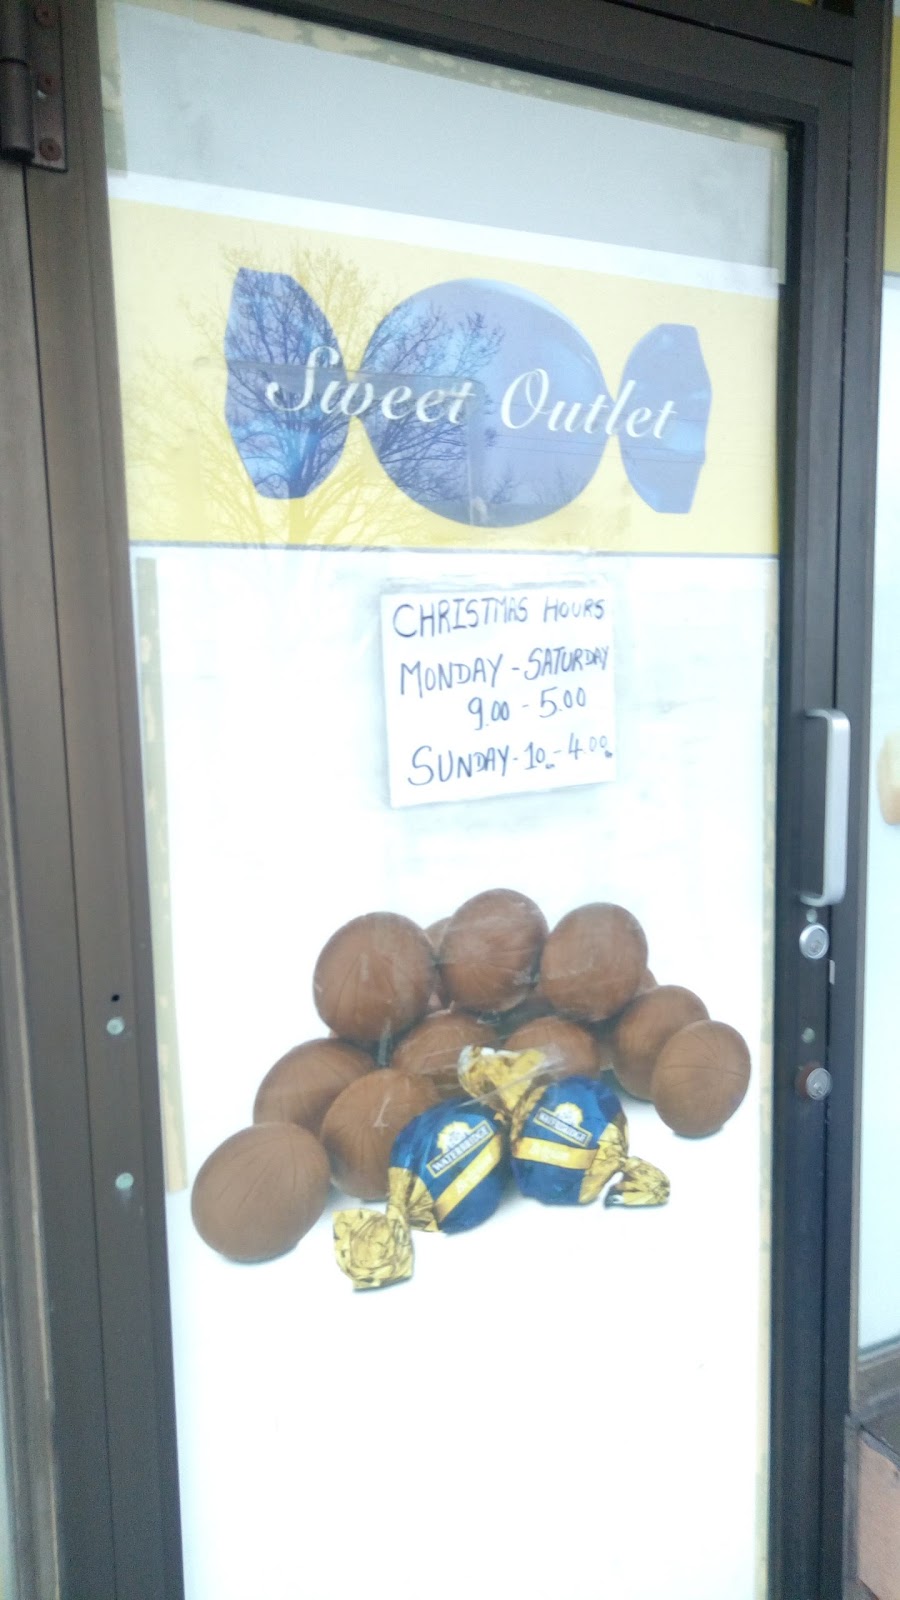 Sweet Outlet
CHRISTMAS HOURS
MONDAY - SATURDAY
9.00 - 5.00
SUNDAY - 10am - 4.00pm
WATERBRIDGE
WATERBRIDGE